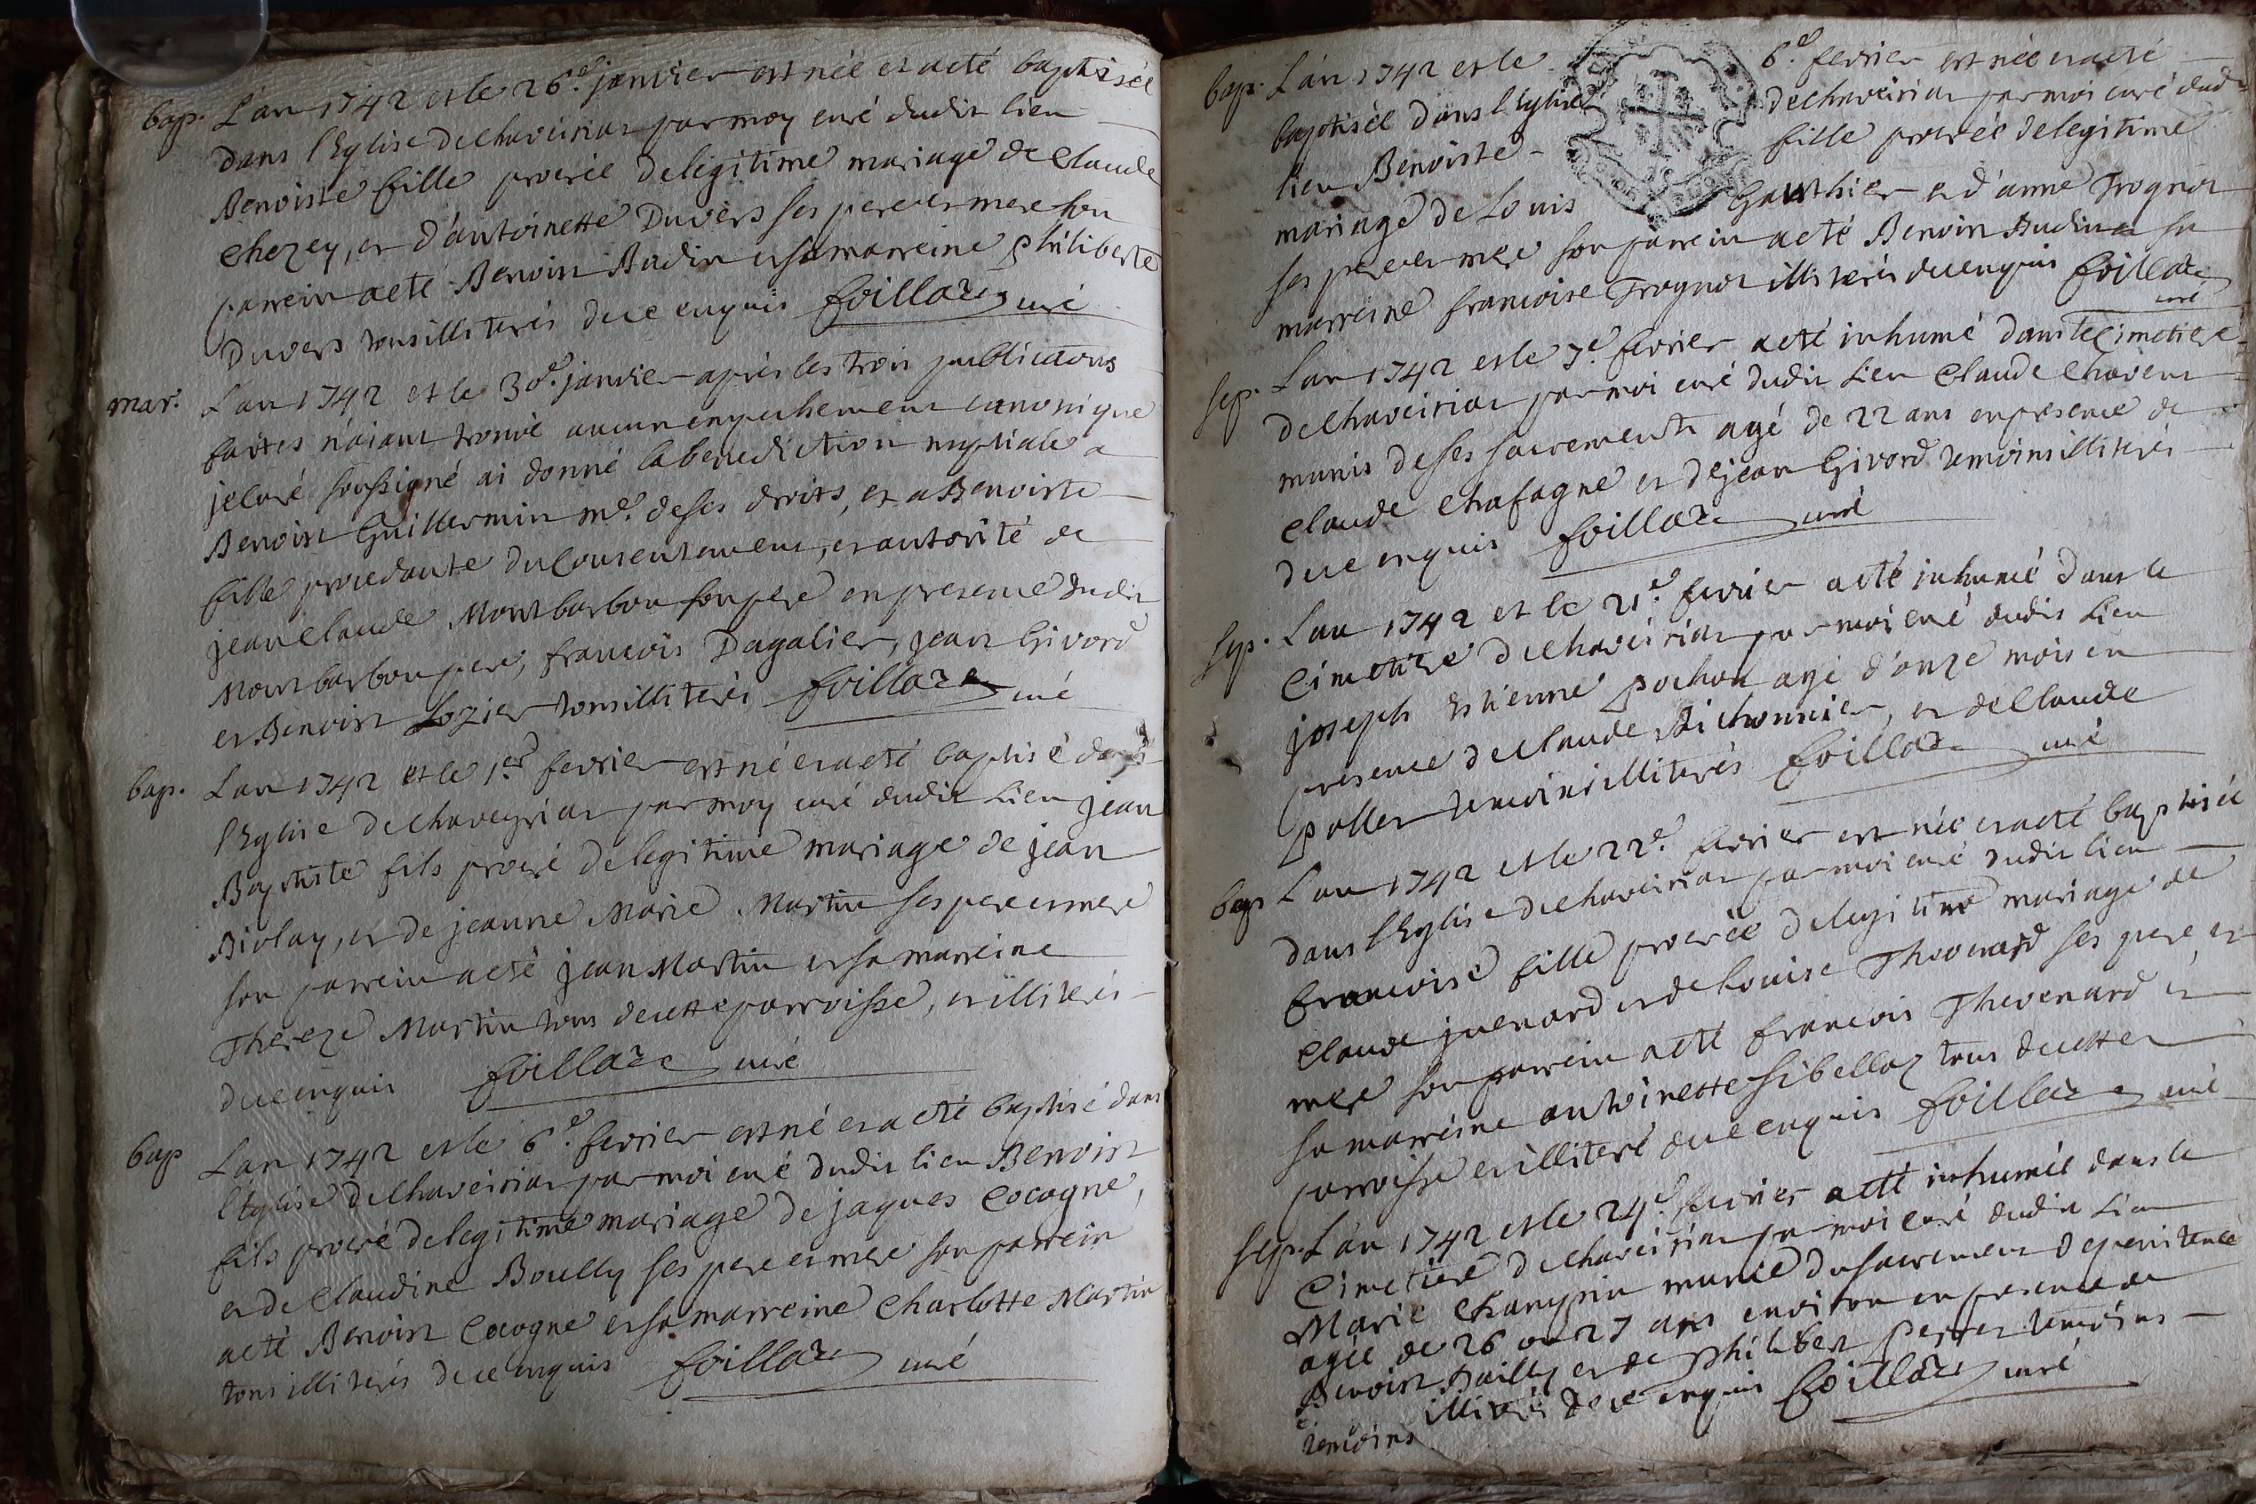 bap. L'an 1742 et le 26.e janvier est née et a été baptisée
dans l'Eglise de chaveiriat par moy curé dudit lieu
Benoiste fille procréé de legitime mariage de Claude
Chezey, et d'antoinette Duvers ses pere et mere son
parrein a eté Benoist Audin et sa marreine philiberte
Duvers tous illiterés de ce enquis foillare curé
mar. L'an 1742 et le 30.e janvier après les trois publications
faites n'aiant trouvé aucun empechement canonique
je curé soussigné ai donné la benediction nuptiale a
Benoist Guillermin me. de ses droits, et a Benoiste
fille procedante du consentement, et autorité de
jean claude Montbarbon son pere en presence dudit
Montbarbon pere, francois Dagalier, jean Givord
et Benoist Lozier tous illiterés foillare curé
bap. L'an 1742 et le 1.er fevrier est né et a eté baptisé dans
l'Eglise de chaveyriat par moy curé dudit Lieu jean
Baptiste fils procréé de legitime mariage de jean
Biolay, et de jeanne Marie Martin ses pere et mere
son parrein a eté jean Martin et sa marreine
Thereze Martin tous de cette parroisse, et illiterés
de ce enquis foillare curé
bap L'an 1742 et le 6.e fevrier est né et a eté baptisé dans
l'Eglise de chaveiriat par moi curé dudit lieu Benoist
fils procréé de legitime mariage de jaques Cocogne,
et de Claudine Boully ses pere et mere son parrein
a eté Benoist Cocogne et sa marreine Charlotte Martin
tous illiterés de ce enquis foillare curé
bap. L'an 1742 et le 6.e fevrier est née et a eté
baptisée dans l'Eglise de chaveiriat par moi curé dud
lieu Benoiste fille procréé de legitime
mariage de Louis Gauthier et d'anne Trognot
ses pere et mere son parrein a eté Benoist Audin et sa
marreine francoise Trognot illiterés de ce enquis foillare
curé
sep. L'an 1742 et le 7.e fevrier a eté inhumé dans le Cimetiere
de chaveiriat par moi curé dudit Lieu Claude Chavent
munis de ses sacrements agé de 22 ans en presence de
Claude Chafagne et de jean Givord temoins illiterés
de ce enquis foillare curé
sep. L'an 1742 et le 21.e fevrier a eté inhumé dans le
Cimetire de chaveiriat par moi curé dudit Lieu
joseph Estienne pochon agé d'onze mois en
presence de Claude Bichonnier, et de Claude
pollet temoins illiterés foillare curé
bap L'an 1742 et le 22.e fevrier est née et a eté baptisée
dans l'Eglise de chaveiriat par moi curé dudit lieu
francoise fille procréée de legitime mariage de
Claude juenard et de Louise Thevenard ses pere et
mere son parrein a eté francois Thevenard et
sa marreine antoinette Sibellaz tous de cette
parroisse et illiteré de ce enquis foillare curé
sep. L'an 1742 et le 24.e fevrier a eté inhumée dans le
Cimetiere de chaveiriat par moi curé dudit Lieu
Marie Changrin munie du sacrement de penitence
agée de 26 ou 27 ans environ en presence de
Benoist Bailly et de philibert perret temoins
temoins illiterés de ce enquis foillare curé